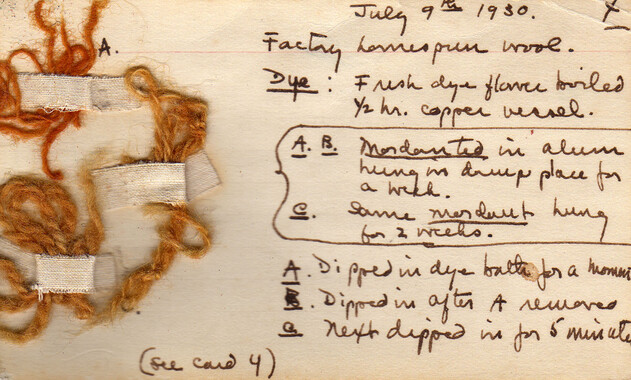 July 9th 1930.
A.
Factory homespun wool.
Dye: Fresh dye flower boiled
1/2 hr. copper vessel.
A. B. Mordanted in alum
hung in damp place for
a week.
C. Same mordant hung
for 2 weeks.
A. Dipped in dye bath for a moment
B. Dipped in after A removed
C. Next dipped in for 5 minutes
(see card 4)